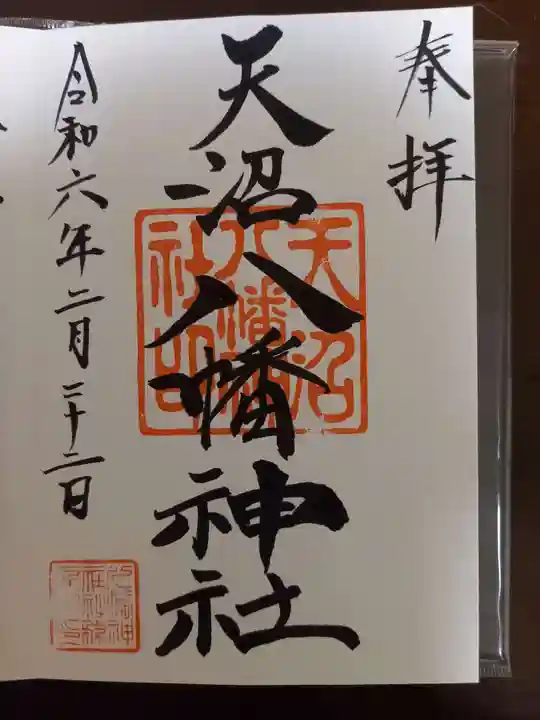 奉拝
天沼八幡神社
天沼
八幡神
社印
令和六年二月二十二日